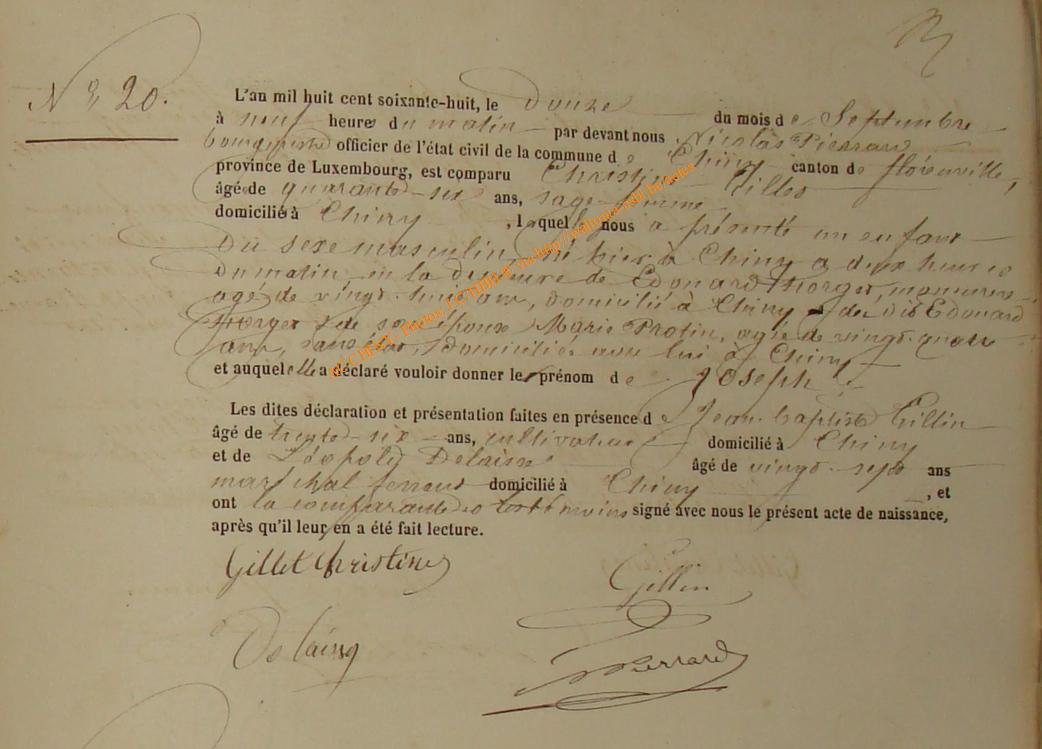 N° 20.
L'an mil huit cent soixante-huit, le douze du mois de Septembre
à neuf heures du matin par devant nous Nicolas Pierrard
bourgmestre officier de l'état civil de la commune de Chiny canton de florenville,
province de Luxembourg, est comparu Christine Gillet
âgée de quarante-six ans, sage-femme
domiciliée à Chiny, laquelle nous a présenté un enfant
du sexe masculin, né hier à Chiny a deux heures
du matin, en la demeure de Edouard Horger, manœuvre
agé de vingt huit ans, domicilié à Chiny de dit Edouard
Horger & de son épouse Marie Protin, agée de vingt quatre
ans, sans état, domiciliée avec lui à Chiny
et auquel elle a déclaré vouloir donner le prénom de Joseph
Les dites déclaration et présentation faites en présence de Jean-baptiste Gillin
âgé de trente-six ans, cultivateur domicilié à Chiny
et de Léopold Delaisse âgé de vingt-sept ans
maréchal ferrant domicilié à Chiny, et
ont la comparante & les témoins signé avec nous le présent acte de naissance,
après qu'il leur en a été fait lecture.
Gillet Christine Gillin
Pierrard